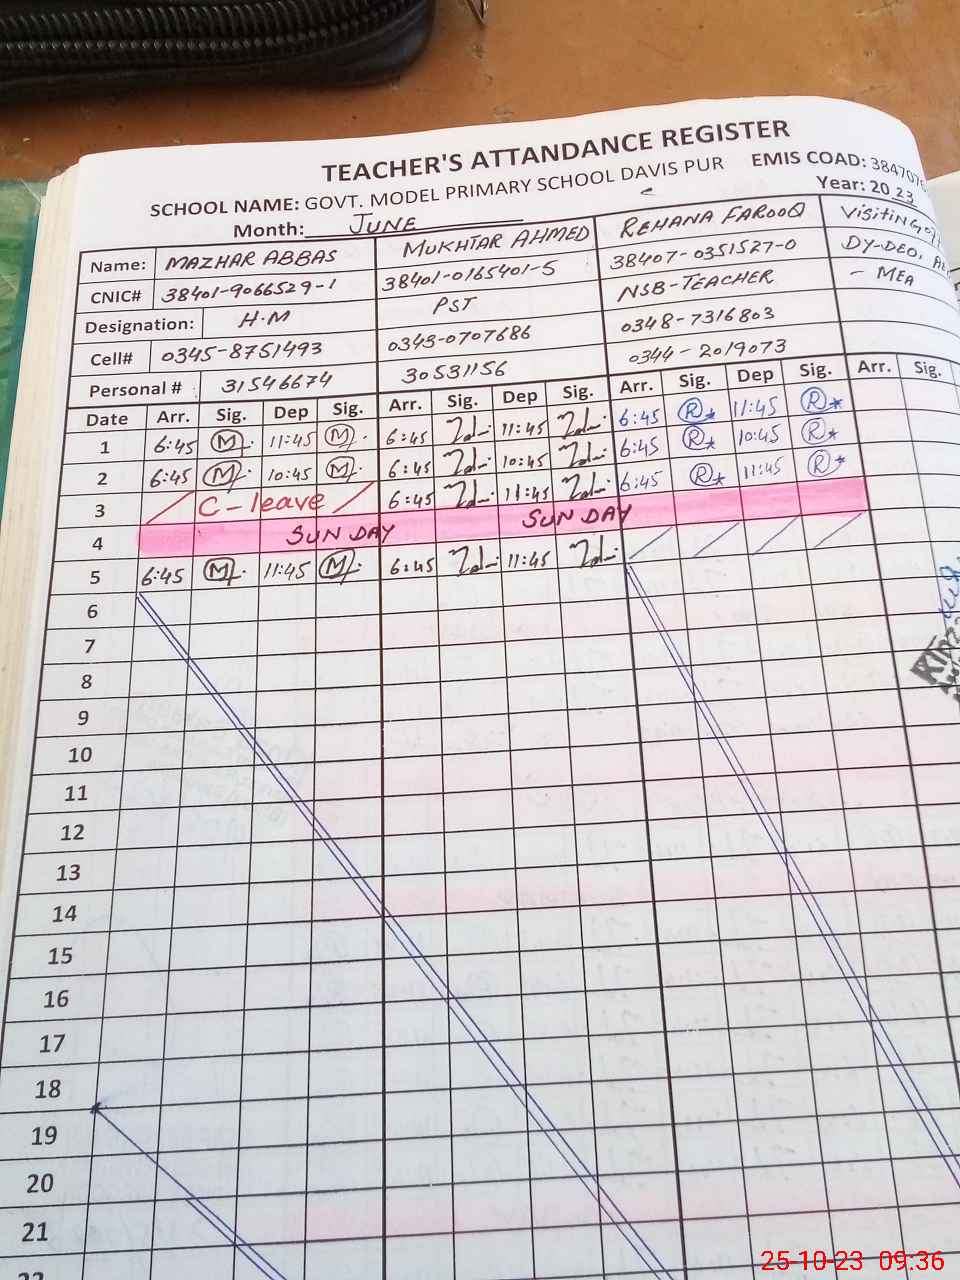 TEACHER'S ATTANDANCE REGISTER
SCHOOL NAME: GOVT. MODEL PRIMARY SCHOOL DAVIS PUR EMIS COAD:
Month: JUNE Year: 2023
Name: MAZHAR ABBAS MUKHTAR AHMED REHANA FAROOQ Visiting
CNIC# 38401-9066529-1 38401-0165401-5 38407-0351527-0 DY-DEO,
Designation: H.M PST NSB-TEACHER - MEA
Cell# 0345-8751493 0343-0707686 0348-7316803
Personal # 31546674 30531156 0344-2019073
Date Arr. Sig. Dep Sig. Arr. Sig. Dep Sig. Arr. Sig. Dep Sig. Arr. Sig.
1 6:45 M 11:45 M 6:45 11:45 6:45 R 11:45 R
2 6:45 M 10:45 M 6:45 10:45 6:45 R 10:45 R
3 C-leave 6:45 11:45 6:45 R 11:45 R
4 SUNDAY SUNDAY
5 6:45 M 11:45 M 6:45 11:45
6
7
8
9
10
11
12
13
14
15
16
17
18
19
20
21
25-10-23 09:36